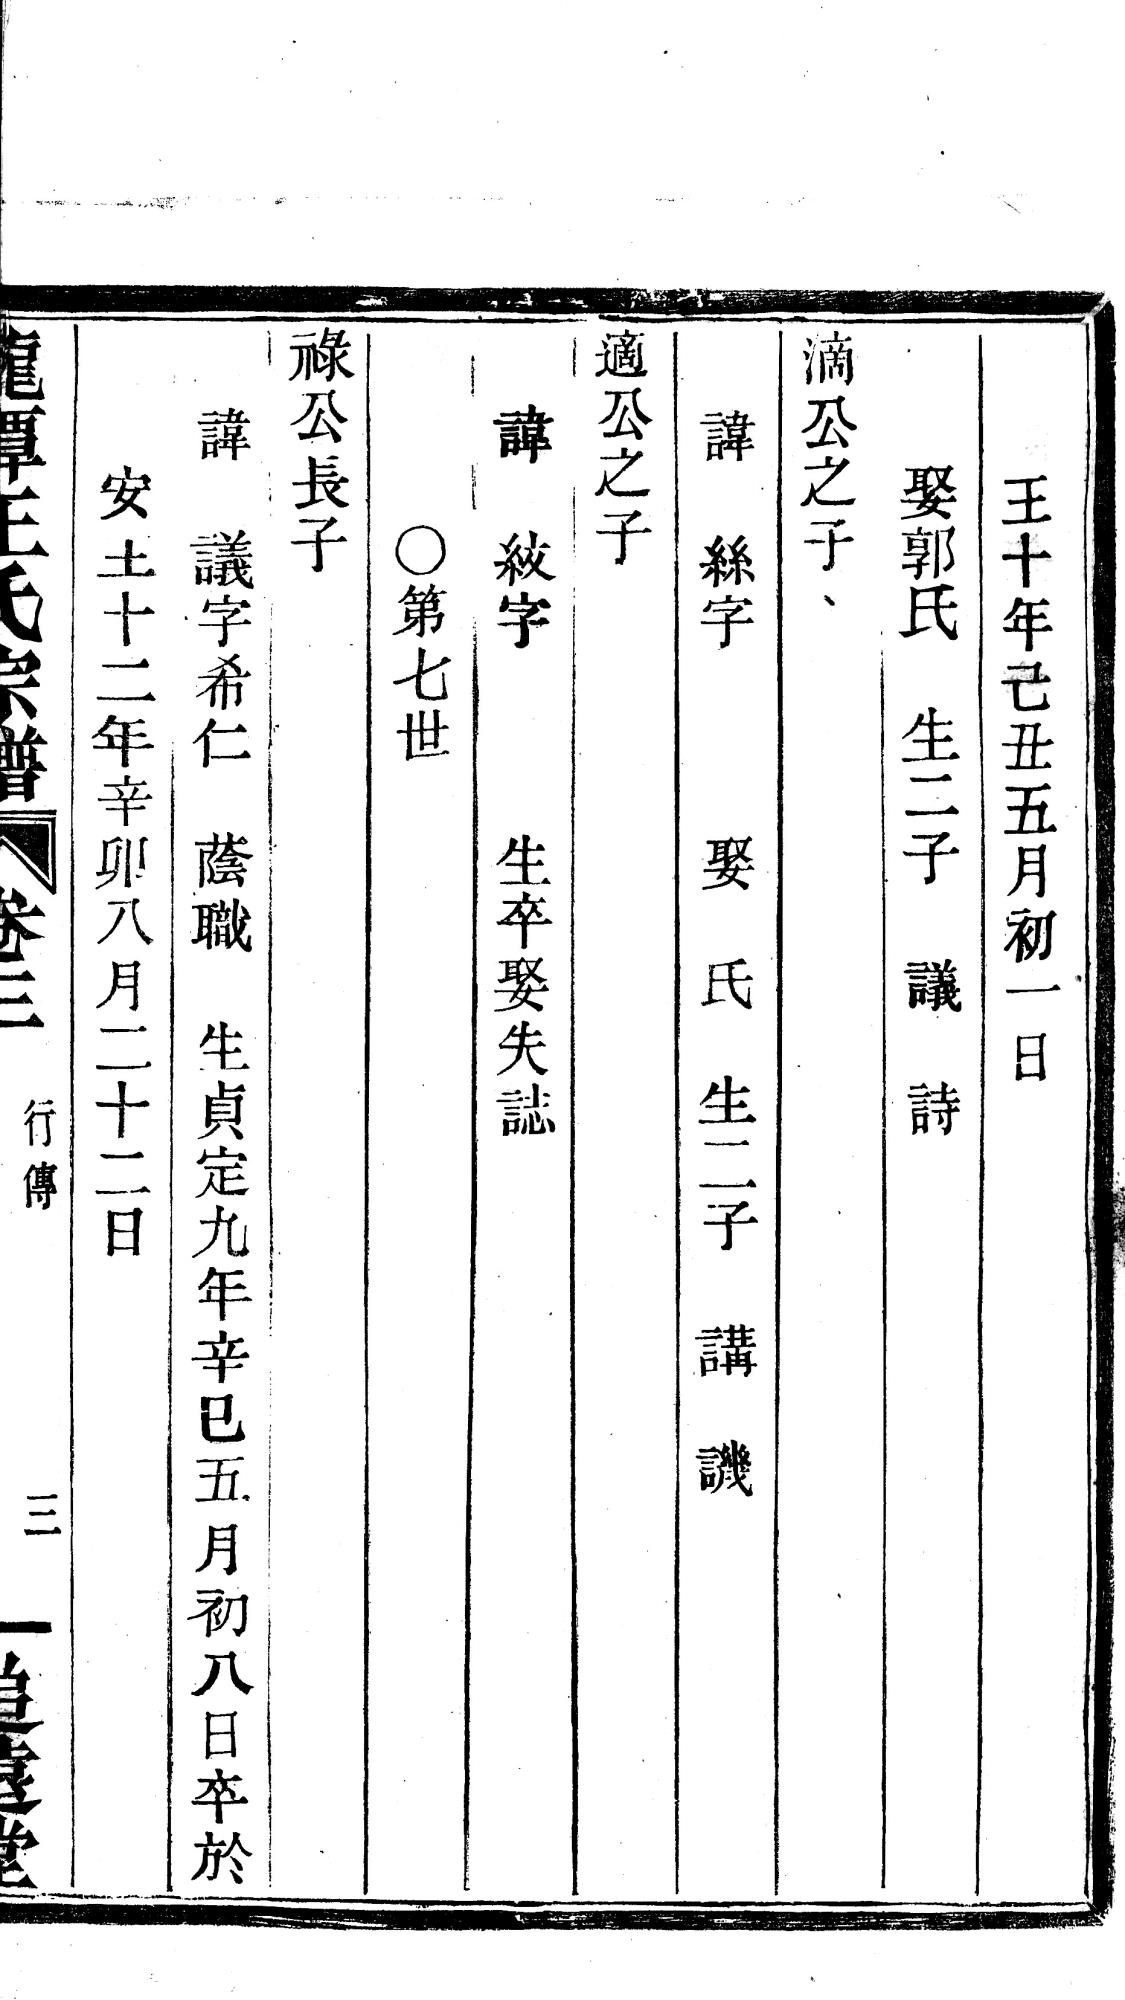 王十年己丑五月初一日
娶郭氏 生二子 議 詩
滴公之子、
諱 絲字 娶 氏 生二子 講 譏
適公之子
諱 紋字 生卒娶失誌
○第七世
祿公長子
諱 議字希仁 蔭職 生貞定九年辛巳五月初八日卒於
安土十二年辛卯八月二十二日
龍潭王氏宗譜 卷三 行傳 三 追遠堂